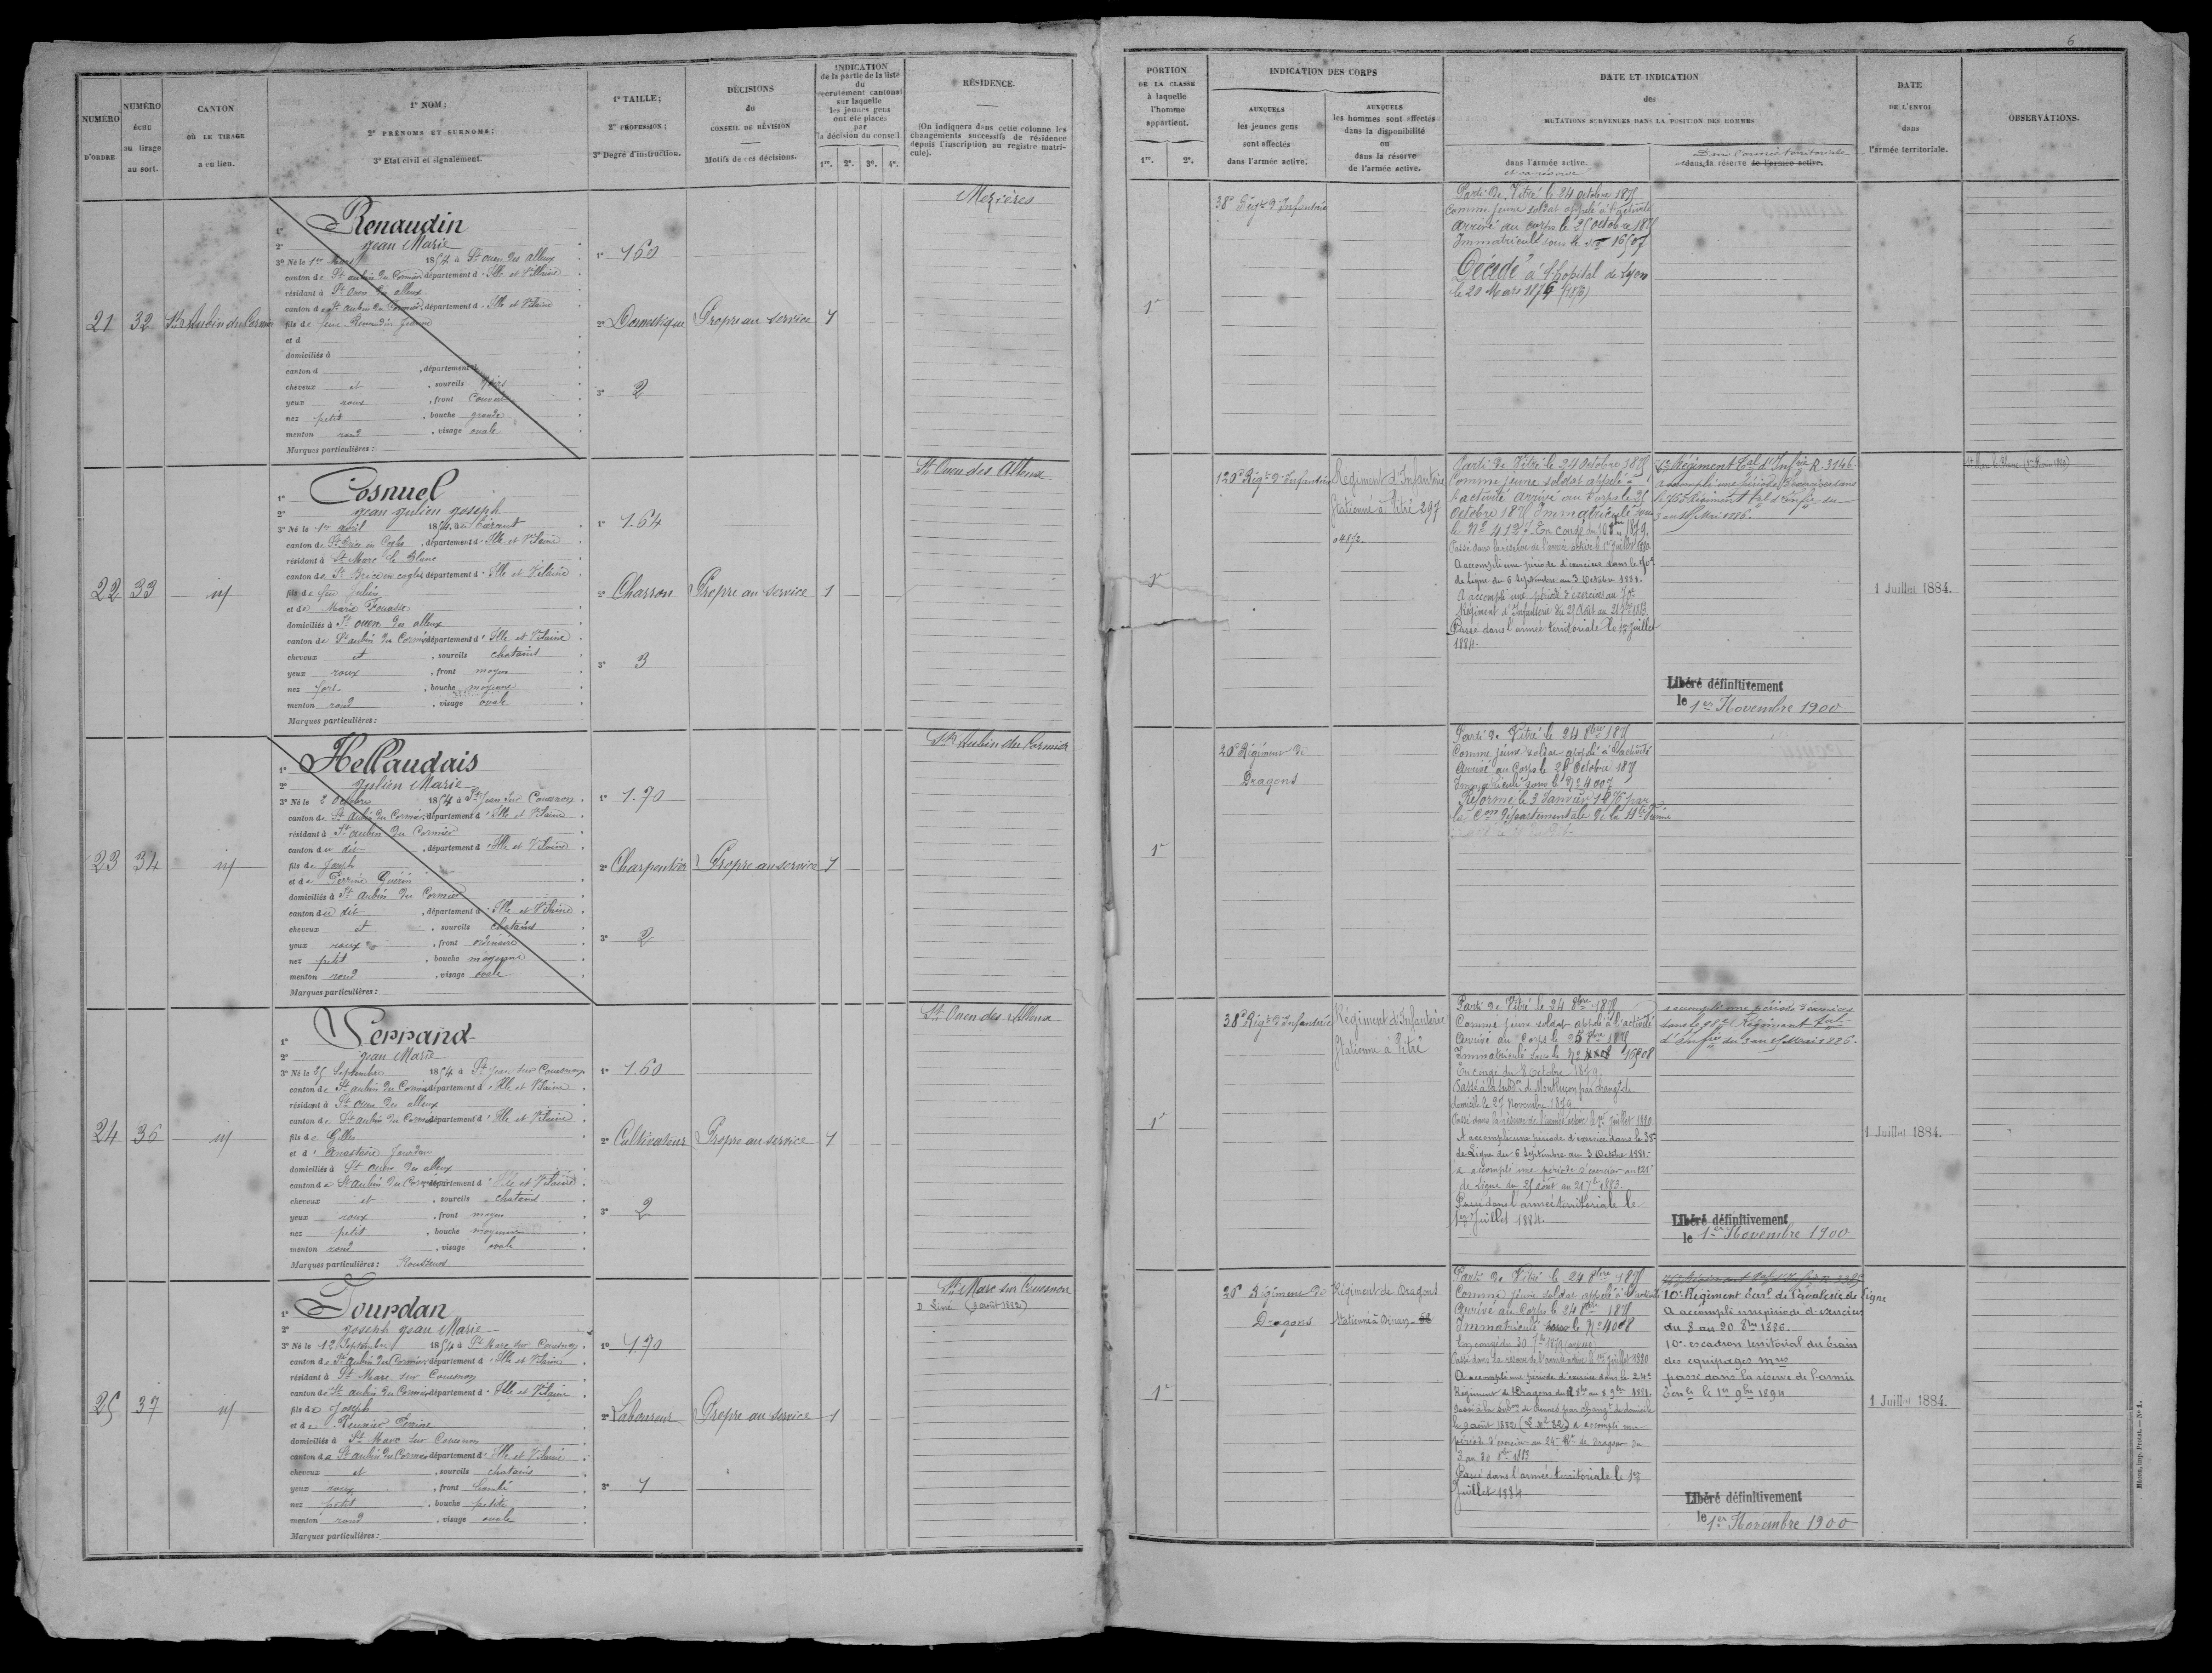 6
NUMÉRO D'ORDRE
NUMÉRO ÉCHU au tirage au sort.
CANTON OÙ LE TIRAGE a eu lieu.
1° NOM;
2° PRÉNOMS ET SURNOMS;
3° Etat civil et signalement.
1° TAILLE;
2° PROFESSION;
3° Degré d'instruction.
DÉCISIONS du CONSEIL DE RÉVISION
Motifs de ces décisions.
INDICATION
de la partie de la liste
du
recrutement cantonal
sur laquelle
les jeunes gens
ont été placés
par
la décision du conseil
1re. 2e. 3e. 4e.
RÉSIDENCE.
(On indiquera dans cette colonne les
changements successifs de résidence
depuis l'inscription au registre matri-
cule).
PORTION
DE LA CLASSE
à laquelle
l'homme
appartient.
1re. 2e.
INDICATION DES CORPS
AUXQUELS
les jeunes gens
sont affectés
dans l'armée active.
AUXQUELS
les hommes sont affectés
dans la disponibilité
ou
dans la réserve
de l'armée active.
DATE ET INDICATION
des
MUTATIONS SURVENUES DANS LA POSITION DES HOMMES
dans l'armée active.
et sa réserve
Dans l'armée territoriale
et dans la réserve de l'armée active.
DATE
DE L'ENVOI
dans
l'armée territoriale.
OBSERVATIONS.
21 32 St Aubin du Cormier
1° Renaudin
2° Jean Marie
3° Né le 1er Mars 1854 à St ouen des alleux
canton de St aubin du Cormier département d'Ille et Vilaine
résidant à St Ouen des alleux
canton de St aubin du Cormier, département d'Ille et Vilaine
fils de feu Renaudin Jeanne
et d
domiciliés à
canton d , département d
cheveux et , sourcils noirs
yeux roux , front couvert
nez petit , bouche grande
menton rond , visage ovale
Marques particulières :
1° 1.60
2° Domestique
3° 2
Propre au service 1
Mezières
1e
38e Régt d'Infanterie
Parti de Vitré le 24 octobre 1875
comme jeune soldat appelé à l'activité
arrivé au corps le 25 octobre 1875
Immatriculé sous le No 16507
Décédé à l'hopital de Lyon
le 20 Mars 1876 (1876)
22 33 id
1° Cosnuel
2° Jean Julien Joseph
3° Né le 1er avril 1854, au Tiercent
canton de St Brice en Cogles, département d'Ille et Vilaine
résidant à St Marc le Blanc
canton de St Brice en cogles département d'Ille et Vilaine
fils de feu Julien
et de Marie
domiciliés à St ouen des alleux
canton de St aubin du Cormier département d'Ille et Vilaine
cheveux et , sourcils chatains
yeux roux , front moyen
nez fort , bouche moyenne
menton rond , visage ovale
Marques particulières :
1° 1.64
2° Charron
3° 3
Propre au service 1
St Ouen des Alleux
1e
120e Régt d'Infanterie
Régiment d'Infanterie
Stationné à Vitré 297
Parti de Vitré le 24 Octobre 1875
Comme jeune soldat appelé à
l'activité arrivé au Corps le 25
Octobre 1875 Immatriculé sous
le No 4127. En congé du 10 8bre 1879.
Passé dans la réserve de l'armée active le 1er Juillet 1880
A accompli une période d'exercices dans le 70e
de ligne du 6 Septembre au 3 Octobre 1881.
A accompli une période d'exercices au 70e
Régiment d'Infanterie du 25 Août au 21 7bre 1883.
Passé dans l'armée territoriale le 1er Juillet
1884.
Régiment tal d'Infie R. 3146.
a accompli une période d'exercices dans
le 75e Régiment tal d'Infie du
3 au 15 Mai 1886.
Libéré définitivement
le 1er Novembre 1900
1 Juillet 1884.
23 34 id
1° Hellaudais
2° Julien Marie
3° Né le 2 octobre 1854 à St Jean sur Couesnon
canton de St Aubin du Cormier, département d'Ille et Vilaine
résidant à St aubin du Cormier
canton du dit , département d'Ille et Vilaine
fils de Joseph
et de Perrine Guérin
domiciliés à St Aubin du Cormier
canton du dit , département d'Ille et Vilaine
cheveux et , sourcils chatains
yeux roux , front ordinaire
nez petit , bouche moyenne
menton rond , visage ovale
Marques particulières :
1° 1.70
2° Charpentier
3° 2
Propre au service 1
St Aubin du Cormier
1e
20e Régiment de
Dragons
Parti de Vitré le 24 8bre 1875
Comme jeune soldat appelé à l'activité
arrivé au Corps le 25 Octobre 1875
Immatriculé sous le No 4007
Réformé le 3 Janvier 1876 par
la Cion départementale de la Hte Vienne
24 36 id
1° Serrand
2° Jean Marie
3° Né le 25 Septembre 1854 à St Jean sur Couesnon
canton de St aubin du Cormier département d'Ille et Vilaine
résidant à St Ouen des alleux
canton de St aubin du Cormier département d'Ille et Vilaine
fils de Gilles
et d'Anastasie Jourdan
domiciliés à St ouen des alleux
canton de St aubin du Cormier département d'Ille et Vilaine
cheveux et , sourcils chatains
yeux roux , front moyen
nez petit , bouche moyenne
menton rond , visage ovale
Marques particulières : Rousseurs
1° 1.60
2° Cultivateur
3° 2
Propre au service 1
St Ouen des Alleux
1e
38e Régt d'Infanterie
Régiment d'Infanterie
Stationné à Vitré
Parti de Vitré le 24 8bre 1875
Comme jeune soldat appelé à l'activité
arrivé au Corps le 25 8bre 1875
Immatriculé sous le No 16508
En congé du 8 Octobre 1879.
Passé à la subdon de Montluçon par changt de
domicile le 27 Novembre 1879.
Passé dans la réserve de l'armée active le 1er Juillet 1880.
A accompli une période d'exercice dans le 38e
de Ligne du 6 Septembre au 3 Octobre 1881.
a accompli une période d'exercices au 121e
de Ligne du 25 août au 21 7bre 1883.
Passé dans l'armée territoriale le
1er Juillet 1884.
a accompli une période d'exercices
dans le 98e Régiment tal
d'Infie du 3 au 15 Mai 1886.
Libéré définitivement
le 1er Novembre 1900
1 Juillet 1884.
25 37 id
1° Jourdan
2° Joseph Jean Marie
3° Né le 12 Septembre 1854 à St Marc sur Couesnon
canton de St aubin du Cormier, département d'Ille et Vilaine
résidant à St Marc sur Couesnon
canton de St aubin du Cormier département d'Ille et Vilaine
fils de Joseph
et de Reunier Perrine
domiciliés à St Marc sur Couesnon
canton de St aubin du Cormier département d'Ille et Vilaine
cheveux et , sourcils chatains
yeux roux , front bombé
nez petit , bouche petite
menton rond , visage ovale
Marques particulières :
1° 1.70
2° Laboureur
3° 1
Propre au service 1
St Marc sur Couesnon
D Livré (9 août 1882)
1e
20e Régiment de
Dragons
Régiment de Dragons
Stationné à Dinan
Parti de Vitré le 24 8bre 1875
Comme jeune soldat appelé à l'activité
arrivé au Corps le 24 8bre 1875
Immatriculé sous le No 4008
En congé du 30 7bre 1879
Passé dans la réserve de l'armée active le 1er Juillet 1880
A accompli une période d'exercice dans le 24e
Régiment de Dragons du 8bre au 8 9bre 1881.
Passé à la subon de Rennes par changt de domicile
le 9 août 1882 a accompli une
période d'exercices au 24e Rt de dragons du
3 au 30 8bre 1883
Passé dans l'armée territoriale le 1er
Juillet 1884.
10e Régiment terl de Cavalerie de ligne
A accompli une periode d'exercices
du 8 au 20 8bre 1886.
10e escadron territorial du train
des equipages mres
passé dans la réserve de l'armée
terle le 1er 9bre 1894
Libéré définitivement
le 1er Novembre 1900
1 Juillet 1884.